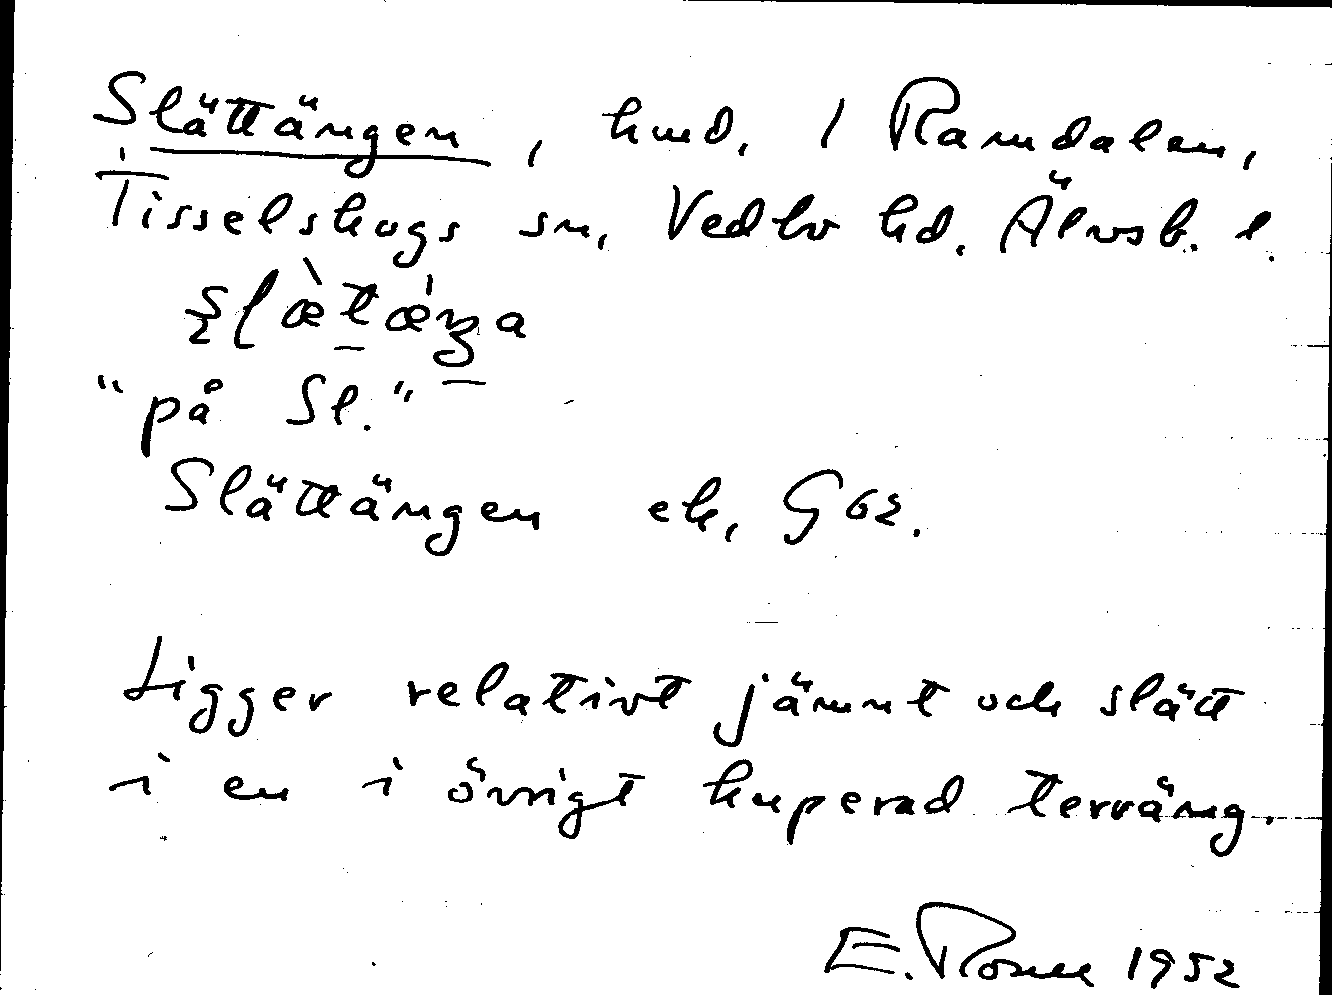 Slättängen, hmd. / Ramdalen,
Tisselskogs sn, Vedbo hd. Älvsb. l.
"på Sl."
Slättängen ek, G 62.
Ligger relativt jämnt och slätt
i en i övrigt kuperad terräng.
E. Rosell 1952